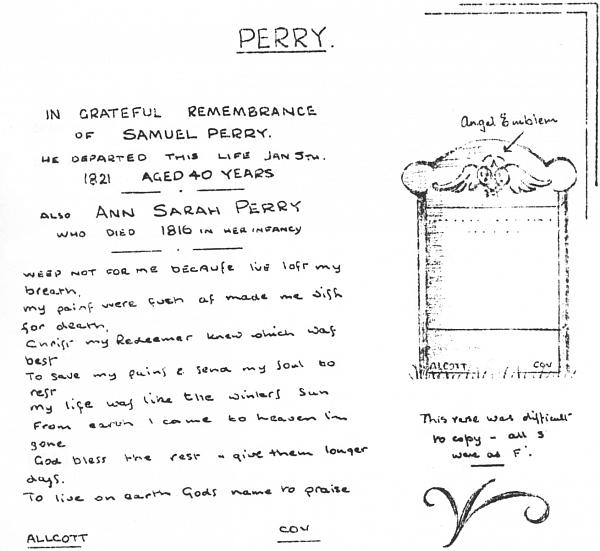 PERRY.
IN GRATEFUL REMEMBRANCE
OF SAMUEL PERRY.
HE DEPARTED THIS LIFE JAN 5TH.
1821 AGED 40 YEARS
ALSO ANN SARAH PERRY
WHO DIED 1816 IN HER INFANCY
WEEP NOT FOR ME BECAUFE I'VE loft my
breath,
my painf were fuch af made me wifh
for death,
Chrift my Redeemer knew which waf
best
To save my pains & send my soul to
reft
my life waf like the winters sun
From earth I came to heaven I'm
gone
God bless the rest - give them longer
days.
To live on earth Gods name to praise
ALLCOTT COV
Angel Emblem
ALCOTT COV
This verse was difficult
to copy - all S
were as F.